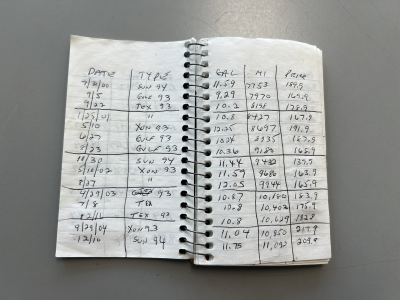 DATE TYPE GAL MI PRICE
7/31/00 SUN 94 11.59 7753 189.9
7/5 GULF 93 9.29 7970 169.9
9/22 TEX 93 10.2 8198 178.9
1/25/01 " 10.8 8427 167.9
5/10 XON 93 12.25 8697 191.9
6/27 GULF 93 10.04 8935 167.9
9/23 GULF 93 10.36 9183 165.9
10/30 SUN 94 11.44 9432 139.9
5/10/02 XON 93 11.59 9686 163.9
8/27 " 12.05 9944 165.9
4/29/03 93 10.87 10,180 183.9
7/8 TEX 10.8 10,402 175.9
12/16 TEX 93 10.8 10,629 182.8
9/29/04 XON 93 11.04 10,850 217.9
12/16 SUN 94 11.75 11,092 209.9